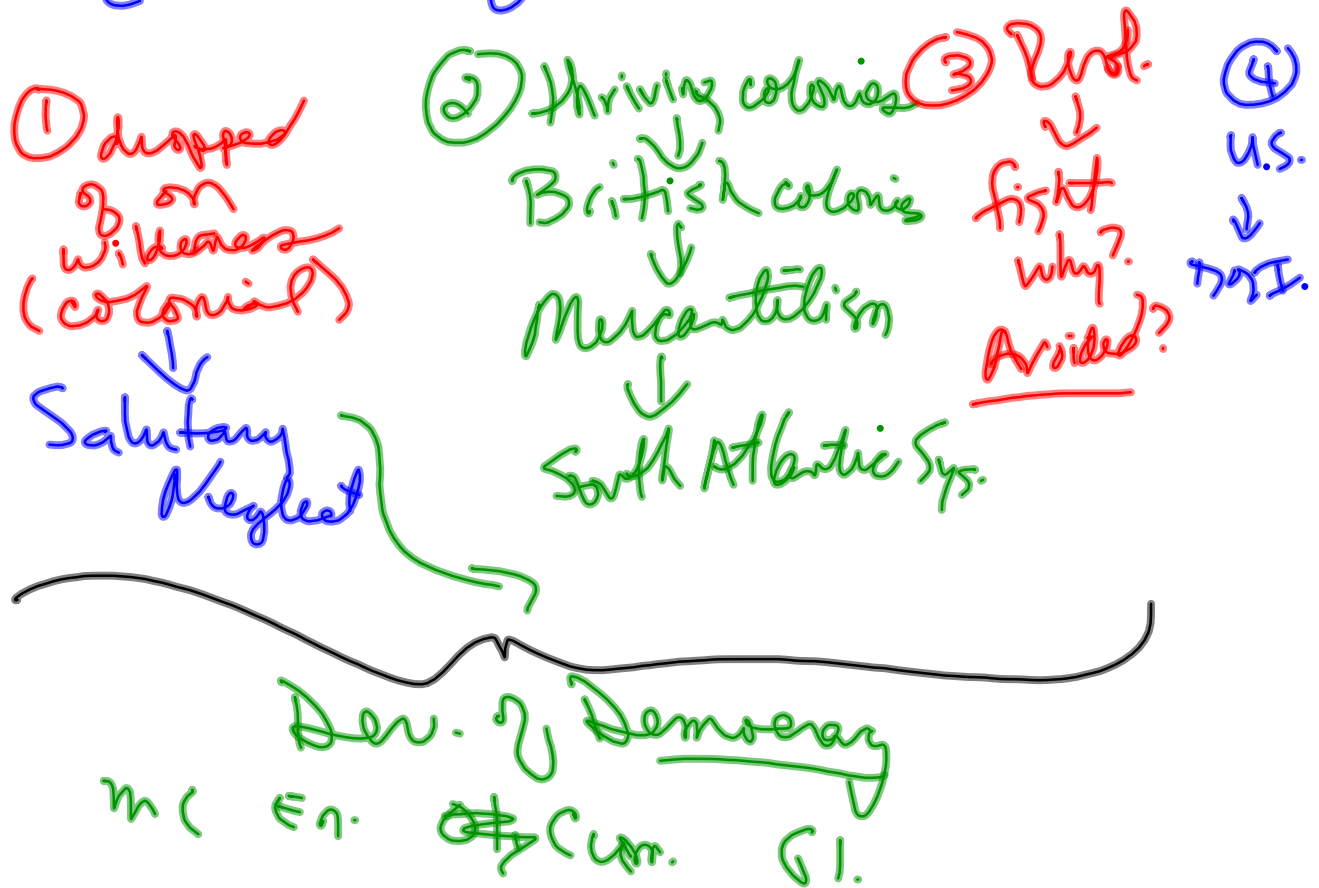 ① dropped
off on
wilderness
(colonial)
↓
Salutary
Neglect
② thriving colonies
↓
British colonies
↓
Mercantilism
↓
South Atlantic Sys.
③ Revol.
↓
fight
why?
Avoided?
④
U.S.
↓
Dev. of Democracy
MC En. Curr. Gl.